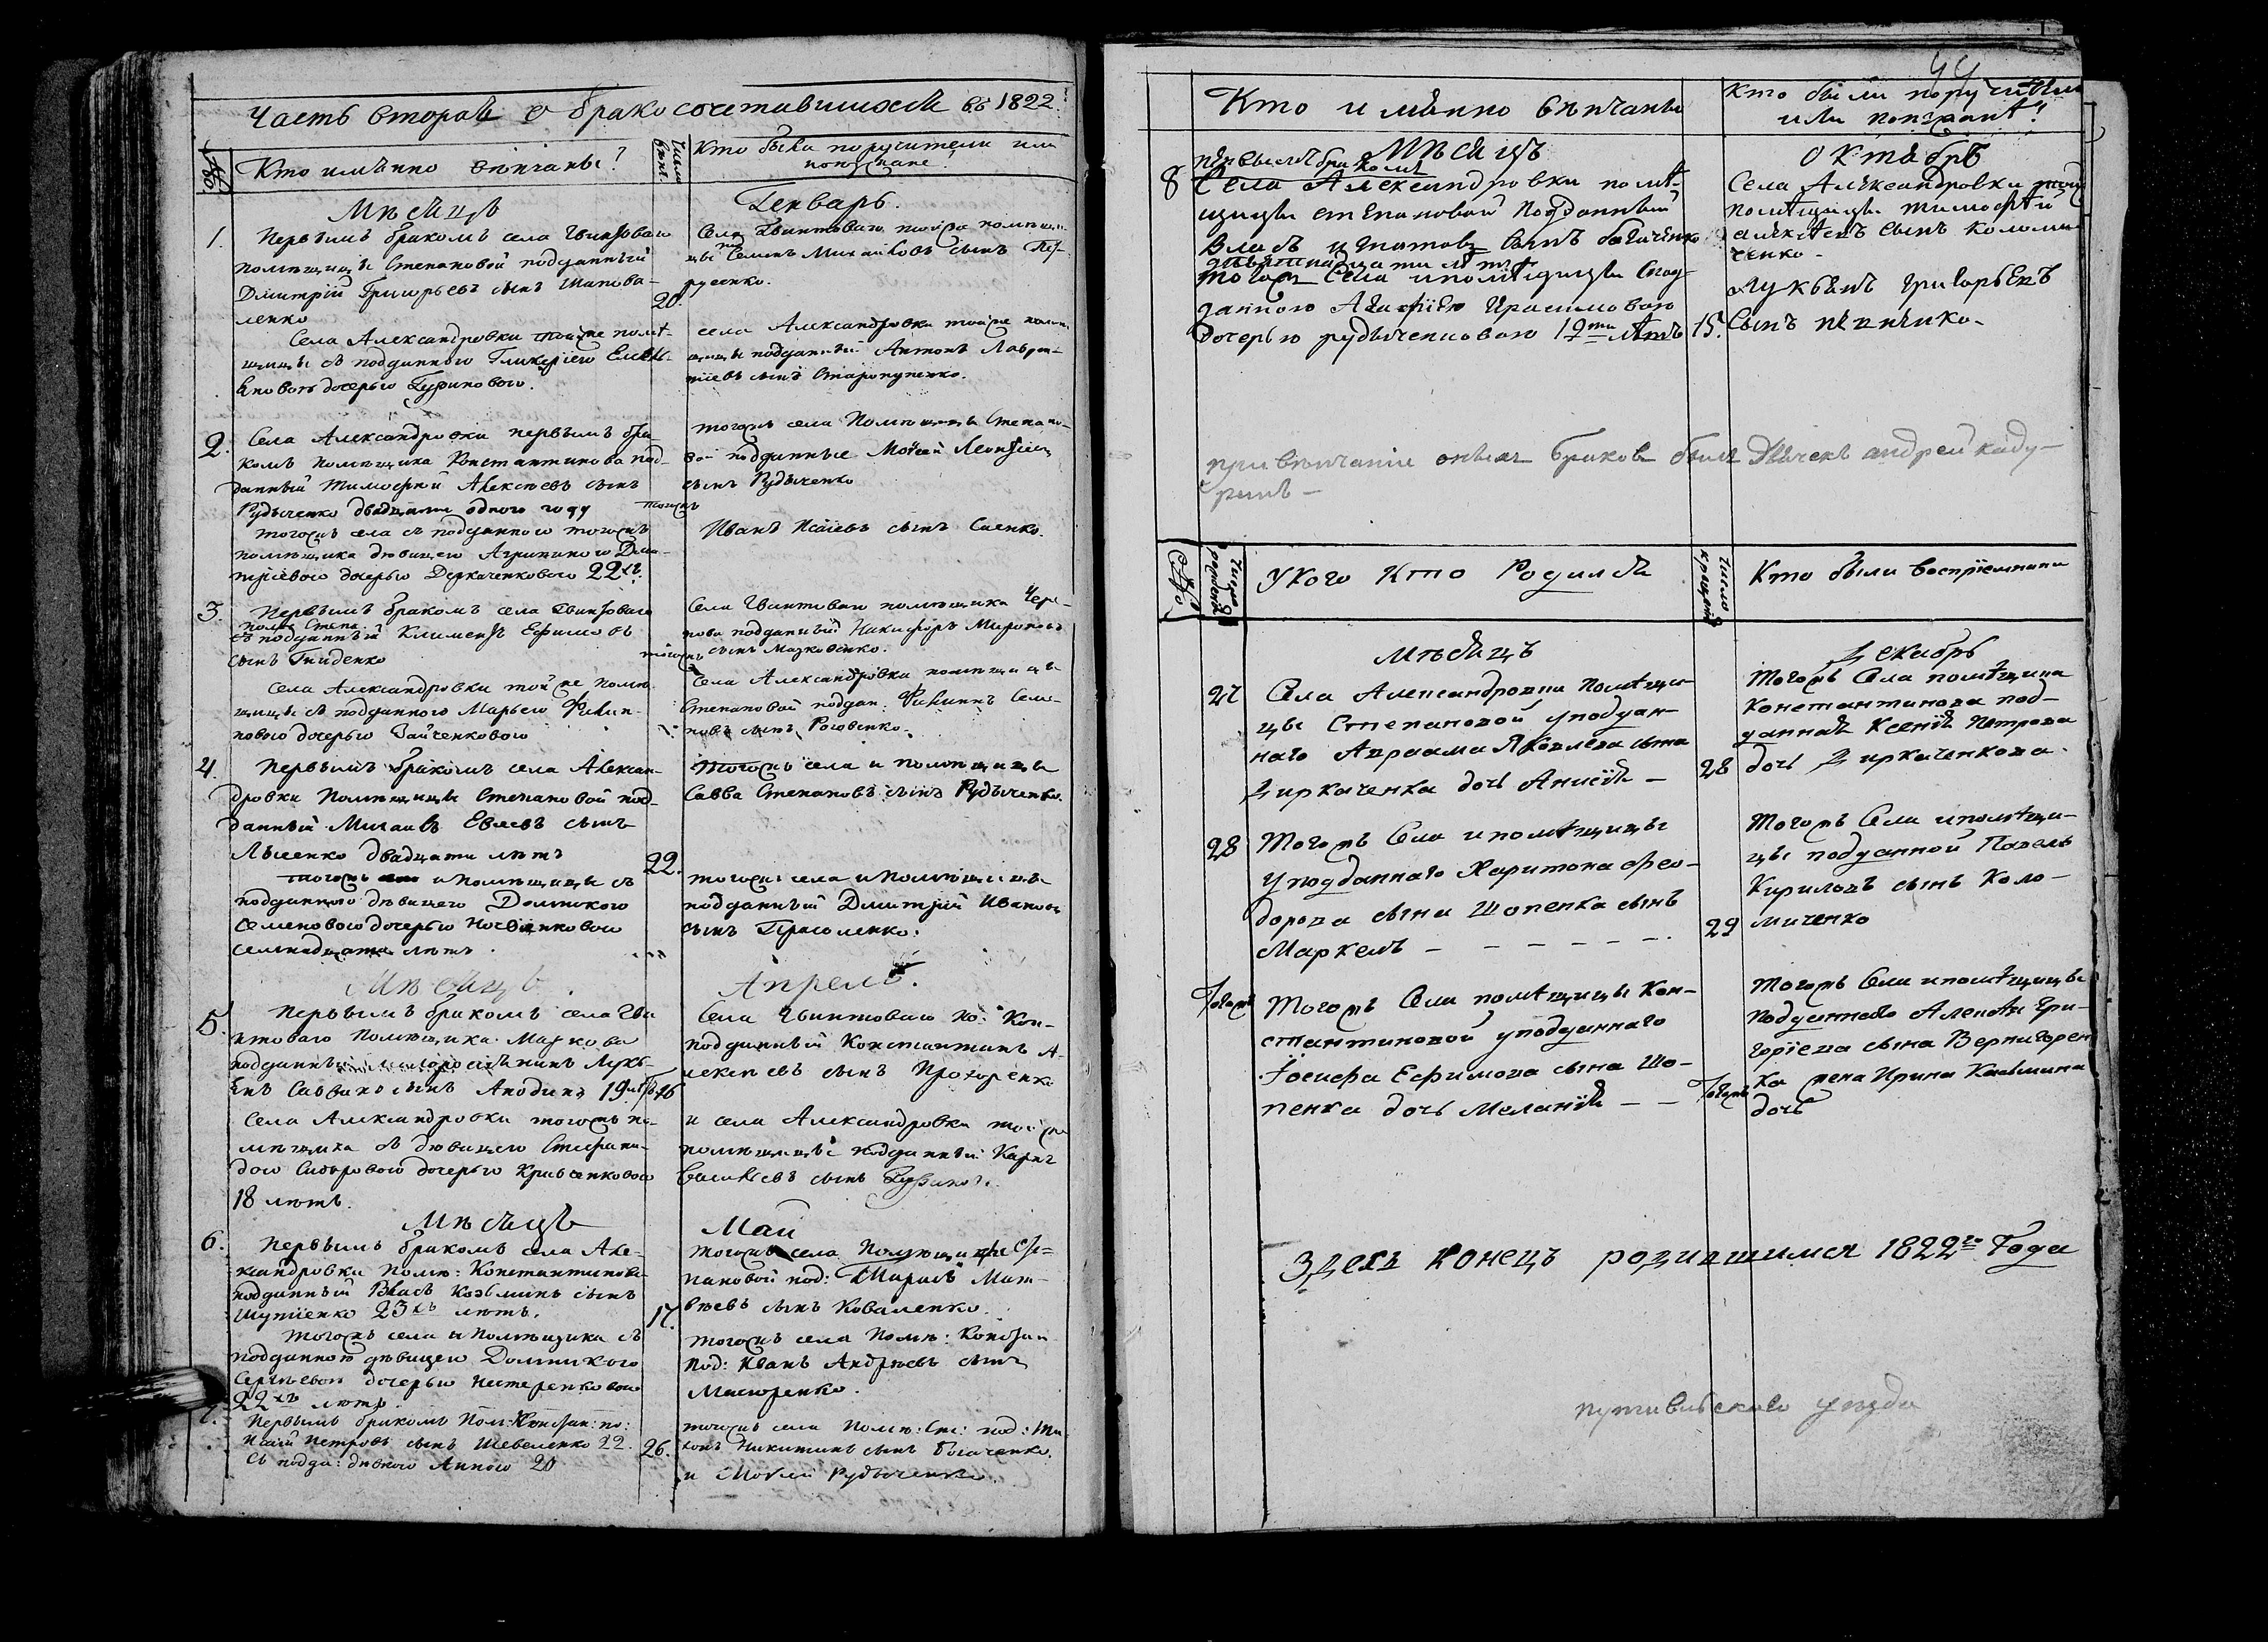 Часть вторая о бракосочетавшихся въ 1822.
№
Кто имянно венчаны?
Число венч.
Кто были поручители или
поезжане?
Месяцъ
Генварь.
1.
Первымъ бракомъ села Гвинтоваго
помѣщицы Степановой подданный
Дмитрій Григорьевъ сынъ Шапова-
ленко
20.
Села Александровки тойже помѣ-
щицы съ подданною Гликеріею
дочерью
Села Гвинтоваго тойже помѣщи-
цы Семенъ Михайловъ сынъ
русенко.
села Александровки тойже помѣ-
щицы подданный Антонъ Лаврен-
тіевъ сынъ
2.
Села Александровки первымъ бра-
комъ помѣщика Константинова под-
данный Тимофей Алексѣевъ сынъ
Рудыченко двадцати одного году
тогожъ
тогожъ села съ подданною тогожъ
помѣщика дѣвицею Агрипиною Дми-
тріевою дочерью Деркаченковою 22хъ
тогожъ села Помѣщицы Степано-
вой подданные Мокей Леонтіевъ
сынъ Рудыченко
Иванъ Исаіевъ сынъ Саенко.
3.
Первымъ бракомъ села Гвинтоваго
помѣ Степа.
подданный Климентъ Ефимовъ
сынъ Гниденко
тогожъ
Села Александровки тойже помѣ-
щицы съ подданною Марьею Филип-
повою дочерью Зайченковою
Села Гвинтоваго помѣщика Чере-
пова подданный Никифоръ Мироновъ
сынъ
Села Александровки помѣщицы
Степановой поддан. Филиппъ Семе-
новъ сынъ Роговенко.
4.
Первымъ бракомъ села Алексан-
дровки Помѣщицы Степановой под-
данный Михаилъ Евсеевъ сынъ
Лысенко двадцати лѣтъ
22.
тогожъ и помѣщицы съ
подданною дѣвицею Домникою
Семеновою дочерью
семнадцати лѣтъ.
тогожъ села и помѣщицы
Савва Степановъ сынъ Рудыченко.
тогожъ села и помѣщицы
подданный Дмитрій Ивановъ
сынъ Прасоленко.
Месяцъ
Апрель.
5.
Первымъ бракомъ села Гви
нтоваго Помѣщика Маркова
подданный Лукь-
янъ Саввинъ сынъ 19 лѣтъ
16
Села Александровки тогожъ по-
мѣщика съ дѣвицею Стефани-
дою Сидоровою дочерью Кривченковою
18 лѣтъ.
Села Гвинтоваго по: Кон-
подданный Константинъ А-
лексѣевъ сынъ Прохоренко
и села Александровки тойже
помѣщицы подданный Карпъ
Васильевъ сынъ
Месяцъ
Май
6.
Первымъ бракомъ села Але-
ксандровки помѣ: Константинова
подданный Власъ Козьминъ сынъ
23хъ лѣтъ.
17.
тогожъ села и Помѣщика съ
подданною дѣвицею Домникою
Сергѣевою дочерью Нестеренковою
22хъ лѣтъ.
тогожъ села Помѣщицы Сте-
пановой под: Тарасъ Мат-
вѣевъ сынъ Коваленко.
тогожъ села Помѣ: Констан
под: Иванъ Андрѣевъ сынъ
7.
Первымъ бракомъ Пом: Констан: по:
Исаій Петровъ сынъ Шевеленко 22.
съ подда: дѣвкою Анною 20
26.
тогожъ села Помѣ: Сте: под: Ти
хонъ Никитинъ сынъ Богаченко.
и Мокей Рудыченко.
44
Кто имянно вѣнчаны
Кто были поручители
или поезжанѣ?
Месяцъ
Октябрь
8
первымъ бракомъ
Села Александровки помѣ-
щицы степановой подданный
Власъ игнатовъ сынъ богаченко
девятнадцати лѣтъ
тогожъ села ипомѣщицы спод-
данною Агафіею Герасимовою
дочерью рудыченковою 19ти лѣтъ
15.
Села Александровки тойже
помѣщицы тимофѣй
алексѣевъ сынъ коломи
ченко-
Лукьянъ григорьевъ
сынъ
при вѣнчаніи оныхъ браковъ былъ Дьячекъ андрей каду-
ринъ-
№
Число рожденія
У Кого Кто Родился
Число крещенія
Кто были воспріемники
Мѣсяцъ
Декабрь
27
Села Александровки Помѣщи-
цы Степановой уподдан-
наго Авраама Яковлева сына
Диркаченка дочь Анисія -
28
Тогожъ Села помѣщика
Константинова под-
данная Ксенія Петрова
дочь Диркаченкова.
28
Тогожъ Села ипомѣщицы
уподданнаго Харитона Фео-
дорова сына Шопенка сынъ
Маркелъ - - - - - - -.
29
Тогожъ Села ипомѣщи-
цы подданной Павелъ
Кириловъ сынъ Коло-
миченко
Тогожъ
Тогожъ Села помѣщицы Кон-
стантиновой уподданнаго
Іосифа Ефимова сына Шо-
пенка дочь Меланія - -
Тогожъ
Тогожъ Села ипомѣщицы
подданнаго Алексѣя Гри-
горіева сына Вернигорен
ка жена Ирина Касьмина
дочь
Здесь конецъ родившимся 1822го Года
путивльскаго уезда